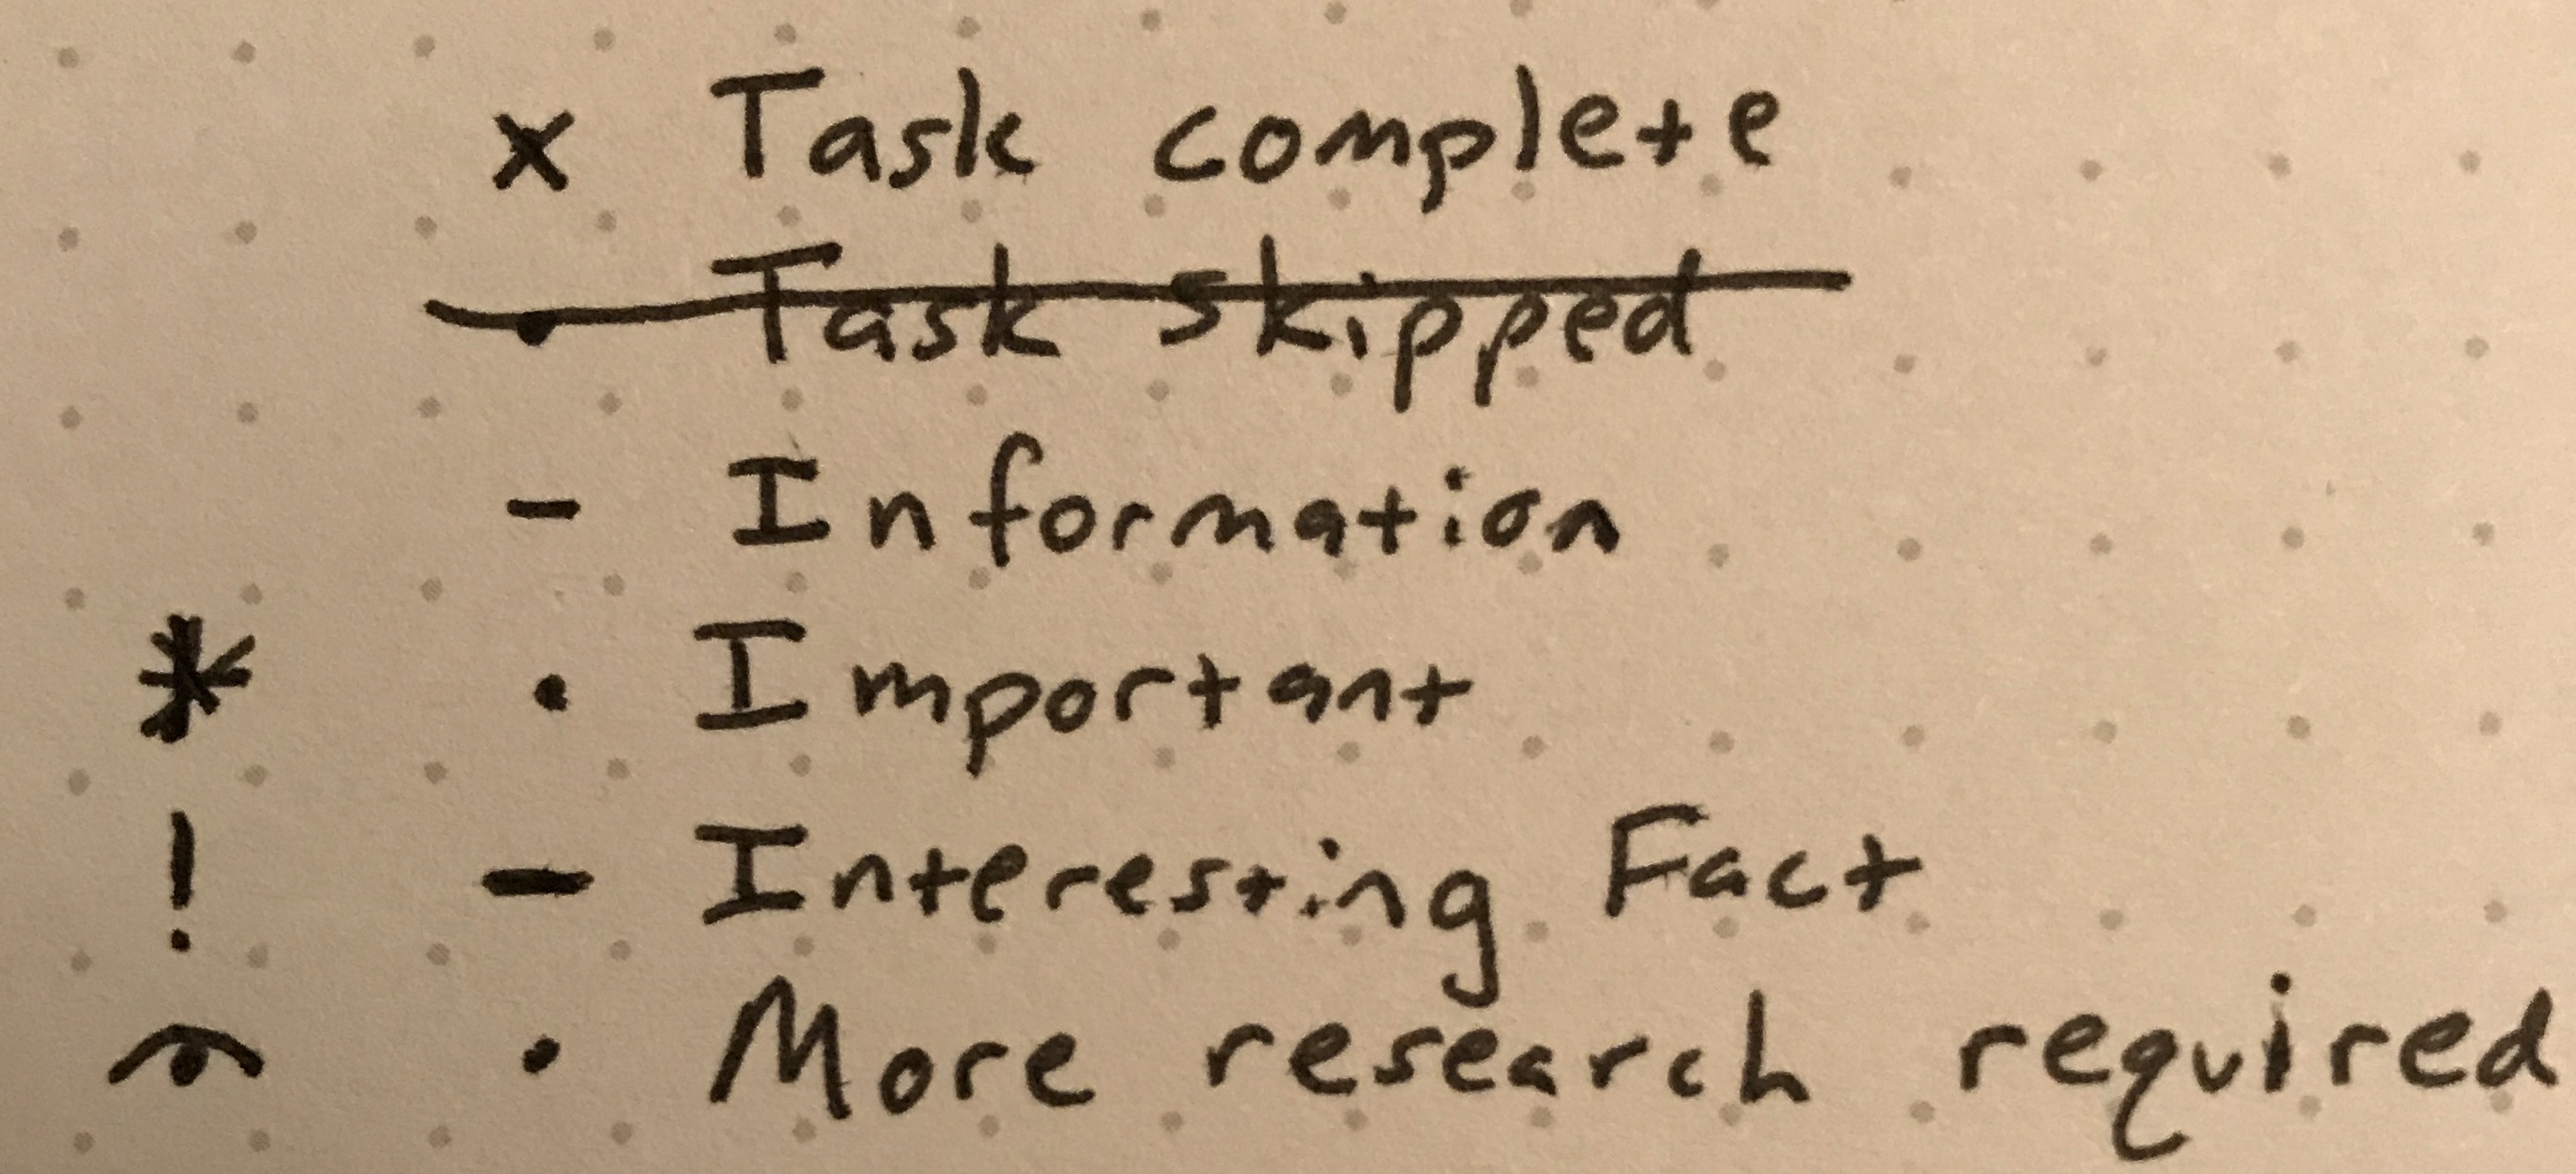 x Task complete
• Task skipped
- Information
* • Important
! - Interesting Fact
• More research required